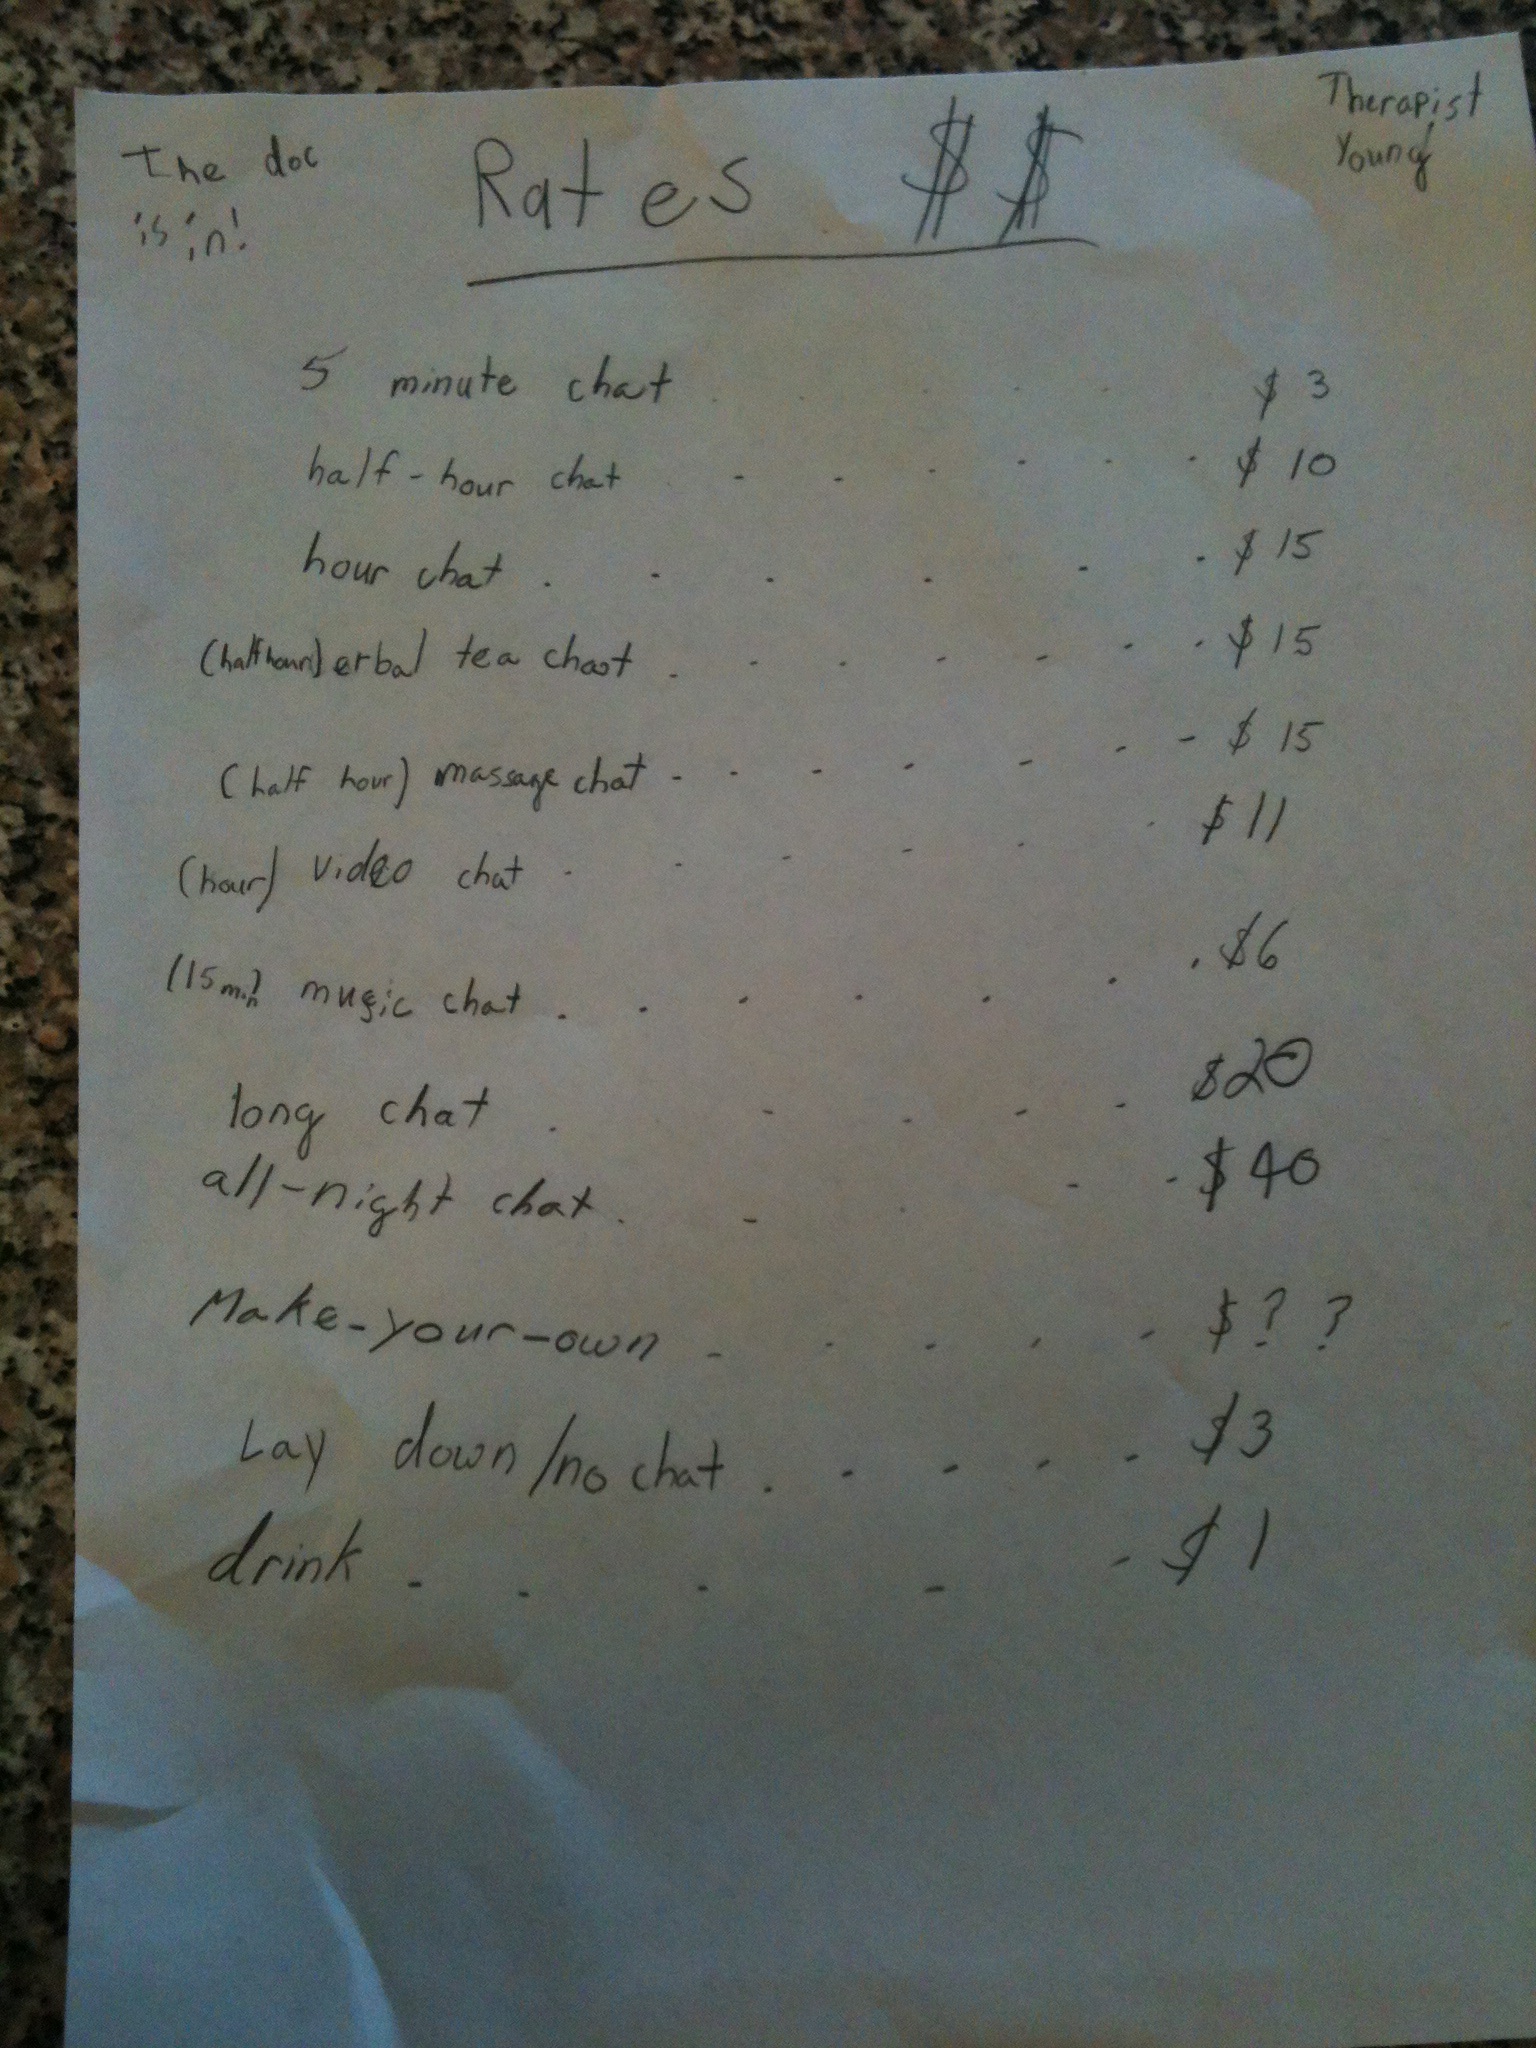 The doc
is in!
Rates $$
Therapist
Young
5 minute chat . . . . . $3
half-hour chat . - - . . . . $10
hour chat . . . . . . $15
(half hour) erbal tea chat . . . . . . . $15
(half hour) massage chat - . . . . . - $15
(hour) video chat . . . . . . $11
(15 min) music chat . . . . . . . $6
long chat . . . . . $20
all-night chat . - . - - $40
Make-your-own - . . . - $??
Lay down/no chat . . . . . $3
drink - . . - - $1